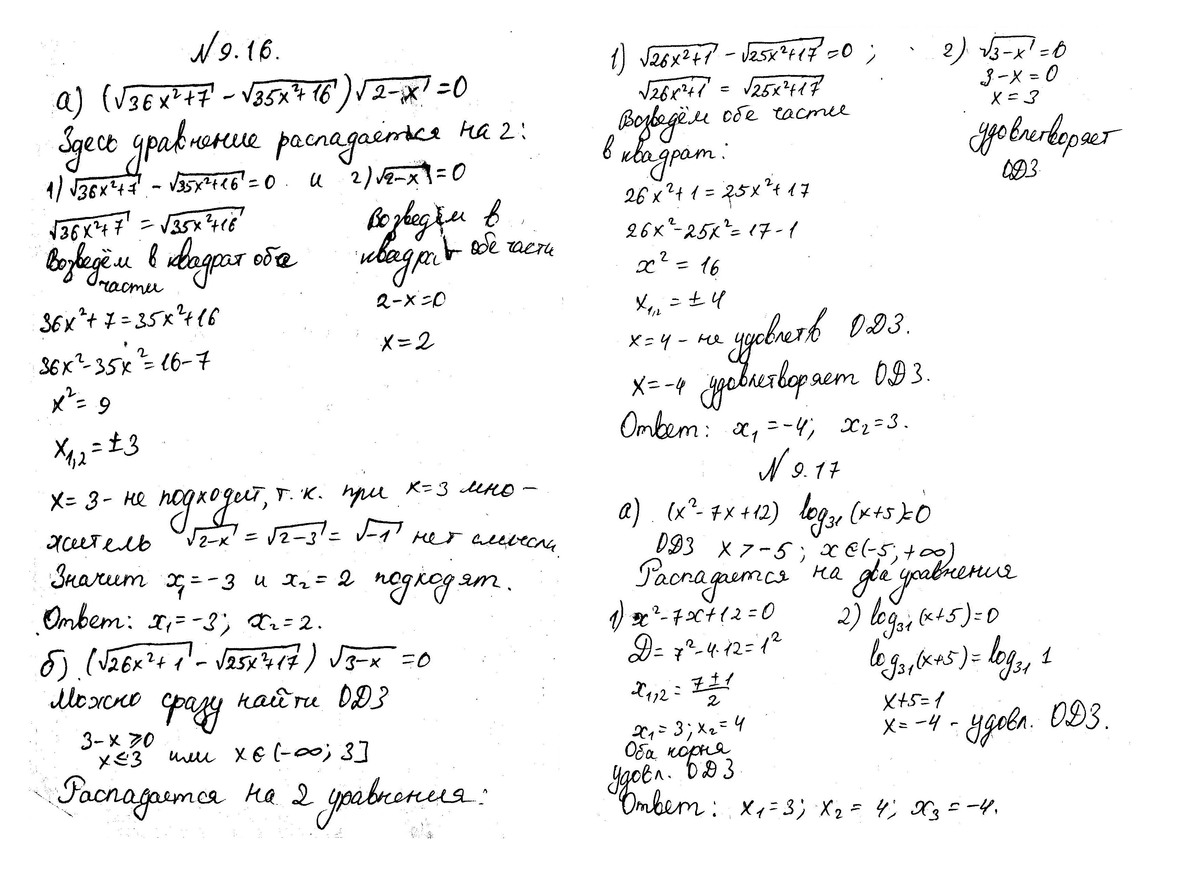 N 9.16.
а) (√36x²+7 - √35x²+16)√2-x = 0
Здесь уравнение распадается на 2:
1) √36x²+7 - √35x²+16 = 0 и 2) √2-x = 0
√36x²+7 = √35x²+16
Возведём в квадрат обе
части
36x²+7 = 35x²+16
36x²-35x² = 16-7
x² = 9
x₁,₂ = ±3
Возведём в
квадрат обе части
2-x=0
x=2
x=3 - не подходит, т.к. при x=3 мно-
житель √2-x = √2-3 = √-1 нет смысла
Значит x₁=-3 и x₂=2 подходят.
Ответ: x₁=-3; x₂=2.
б) (√26x²+1 - √25x²+17) √3-x = 0
Можно сразу найти ОДЗ
3-x ≥ 0
x ≤ 3 или x ∈ (-∞; 3]
Распадается на 2 уравнения:
1) √26x²+1 - √25x²+17 = 0;
√26x²+1 = √25x²+17
Возведём обе части
в квадрат:
26x²+1 = 25x²+17
26x²-25x² = 17-1
x² = 16
x₁,₂ = ±4
x=4 - не удовлетв ОДЗ.
x=-4 удовлетворяет ОДЗ.
2) √3-x = 0
3-x=0
x=3
удовлетворяет
ОДЗ
Ответ: x₁=-4; x₂=3.
N 9.17
а) (x²-7x+12) log₃₁(x+5)=0
ОДЗ x>-5; x∈(-5;+∞)
Распадается на два уравнения
1) x²-7x+12=0
D=7²-4·12=1²
x₁,₂ = 7±1/2
x₁=3; x₂=4
Оба корня
удовл. ОДЗ
2) log₃₁(x+5)=0
log₃₁(x+5)=log₃₁ 1
x+5=1
x=-4 - удовл. ОДЗ.
Ответ: x₁=3; x₂=4; x₃=-4.